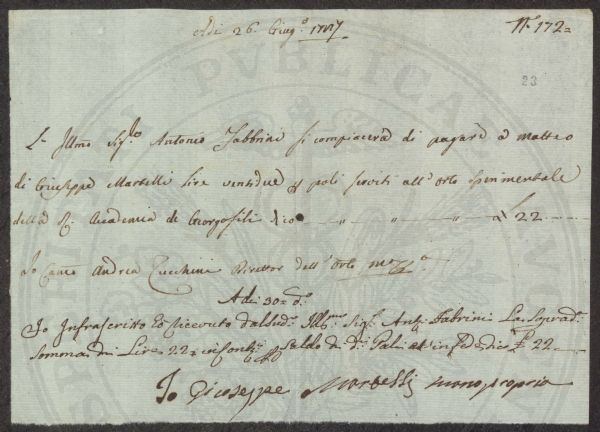 Adi 26. Giug.o 1787
N.o 172=
23
L'Illmo Sig.re Antonio Fabbrini si compiacerà di pagare a Matteo
di Giuseppe Martelli lire ventidue p pali serviti all'Orto sperimentale
della R. Accademia de Georgofili dico " " " £ 22
Io Canco Andrea Zucchini Direttor dell'Orto
Adi 30= d.o
Io Infrascritto ho ricevuto dal sud.o Illmo Sig.e Ant.o Fabrini La Soprad.a
Somma di Lire 22= in Saldo di d.i Pali in fede dico £ 22
Io Giuseppe Martelli mano propria